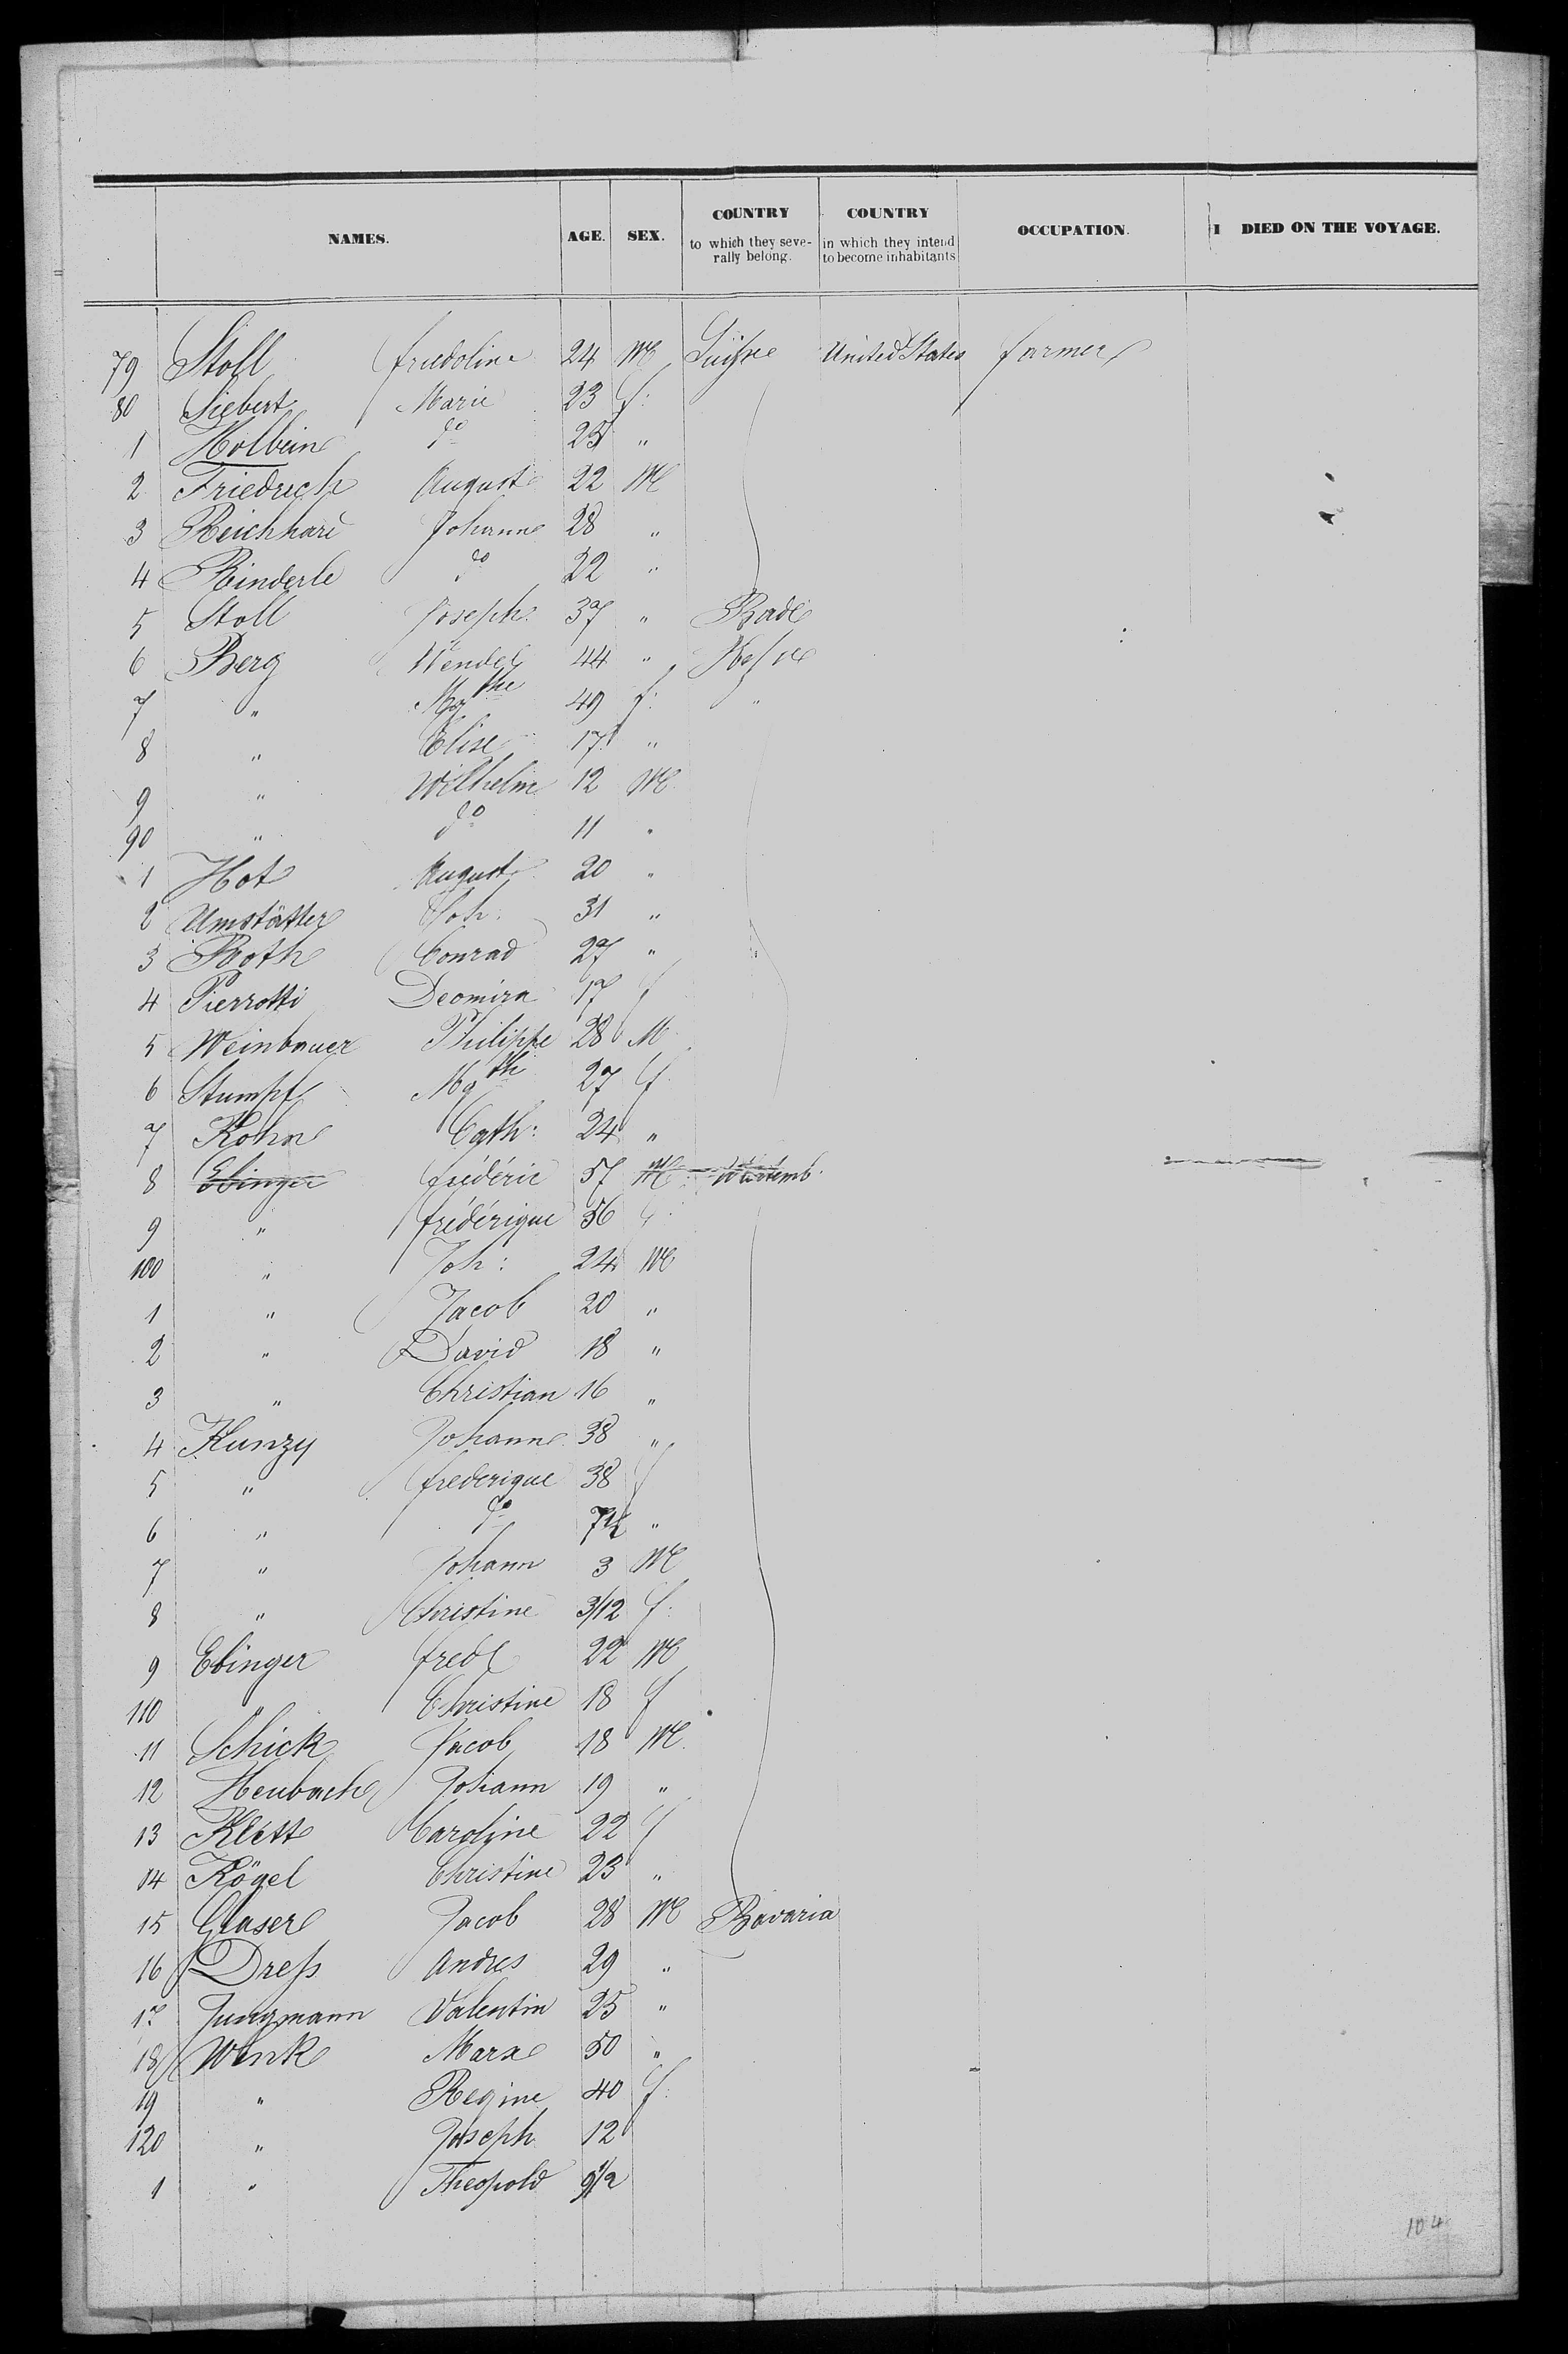 NAMES. AGE. SEX. COUNTRY to which they seve- rally belong. COUNTRY in which they intend to become inhabitants OCCUPATION. DIED ON THE VOYAGE.
79 Stoll Fridoline 24 M Suisse United States farmer
80 Siebert Marie 23 f:
1 Holbein do 25 "
2 Friedrich August 22 M
3 Reichhard Johann 28 "
4 Rinderle do 22 "
5 Stoll Joseph 37 " Bade
6 Berg Wendel 44 " Hesse
7 " Mgthe 49 f: "
8 " Elise 17 "
9 " Wilhelm 12 M
90 " do 11 "
1 Hot August 20 "
2 Umstätter Joh. 31 "
3 Roth Conrad 27 "
4 Pierrotti Deomira 17 f
5 Weinbauer Philippe 28 M
6 Stumpf Mgth 27 f
7 Kohn Cath: 24 "
8 Ebinger frédéric 57 M Wurtemb.
9 " frédérique 56 f
100 " Joh: 24 M
1 " Jacob 20 "
2 " David 18 "
3 " Christian 16 "
4 Kunzy Johann 38 "
5 " frederique 38 f
6 " do 7½ "
7 " Johann 3 M
8 " Christine 3/12 f:
9 Ebinger fred 22 M
110 " Christine 18 f
11 Schick Jacob 18 M
12 Heubach Johann 19 "
13 Klett Caroline 22 f
14 Kögel Christine 23 "
15 Glaser Jacob 28 M Bavaria
16 Dress Andres 29 "
17 Jungmann Valentin 25 "
18 Wink Marx 50 "
19 " Regine 40 f:
120 " Joseph 12
1 " Theopold 9½
104